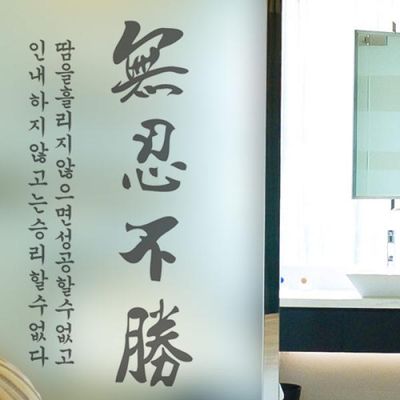 無忍不勝
땀을흘리지않으면성공할수없고
인내하지않고는승리할수없다